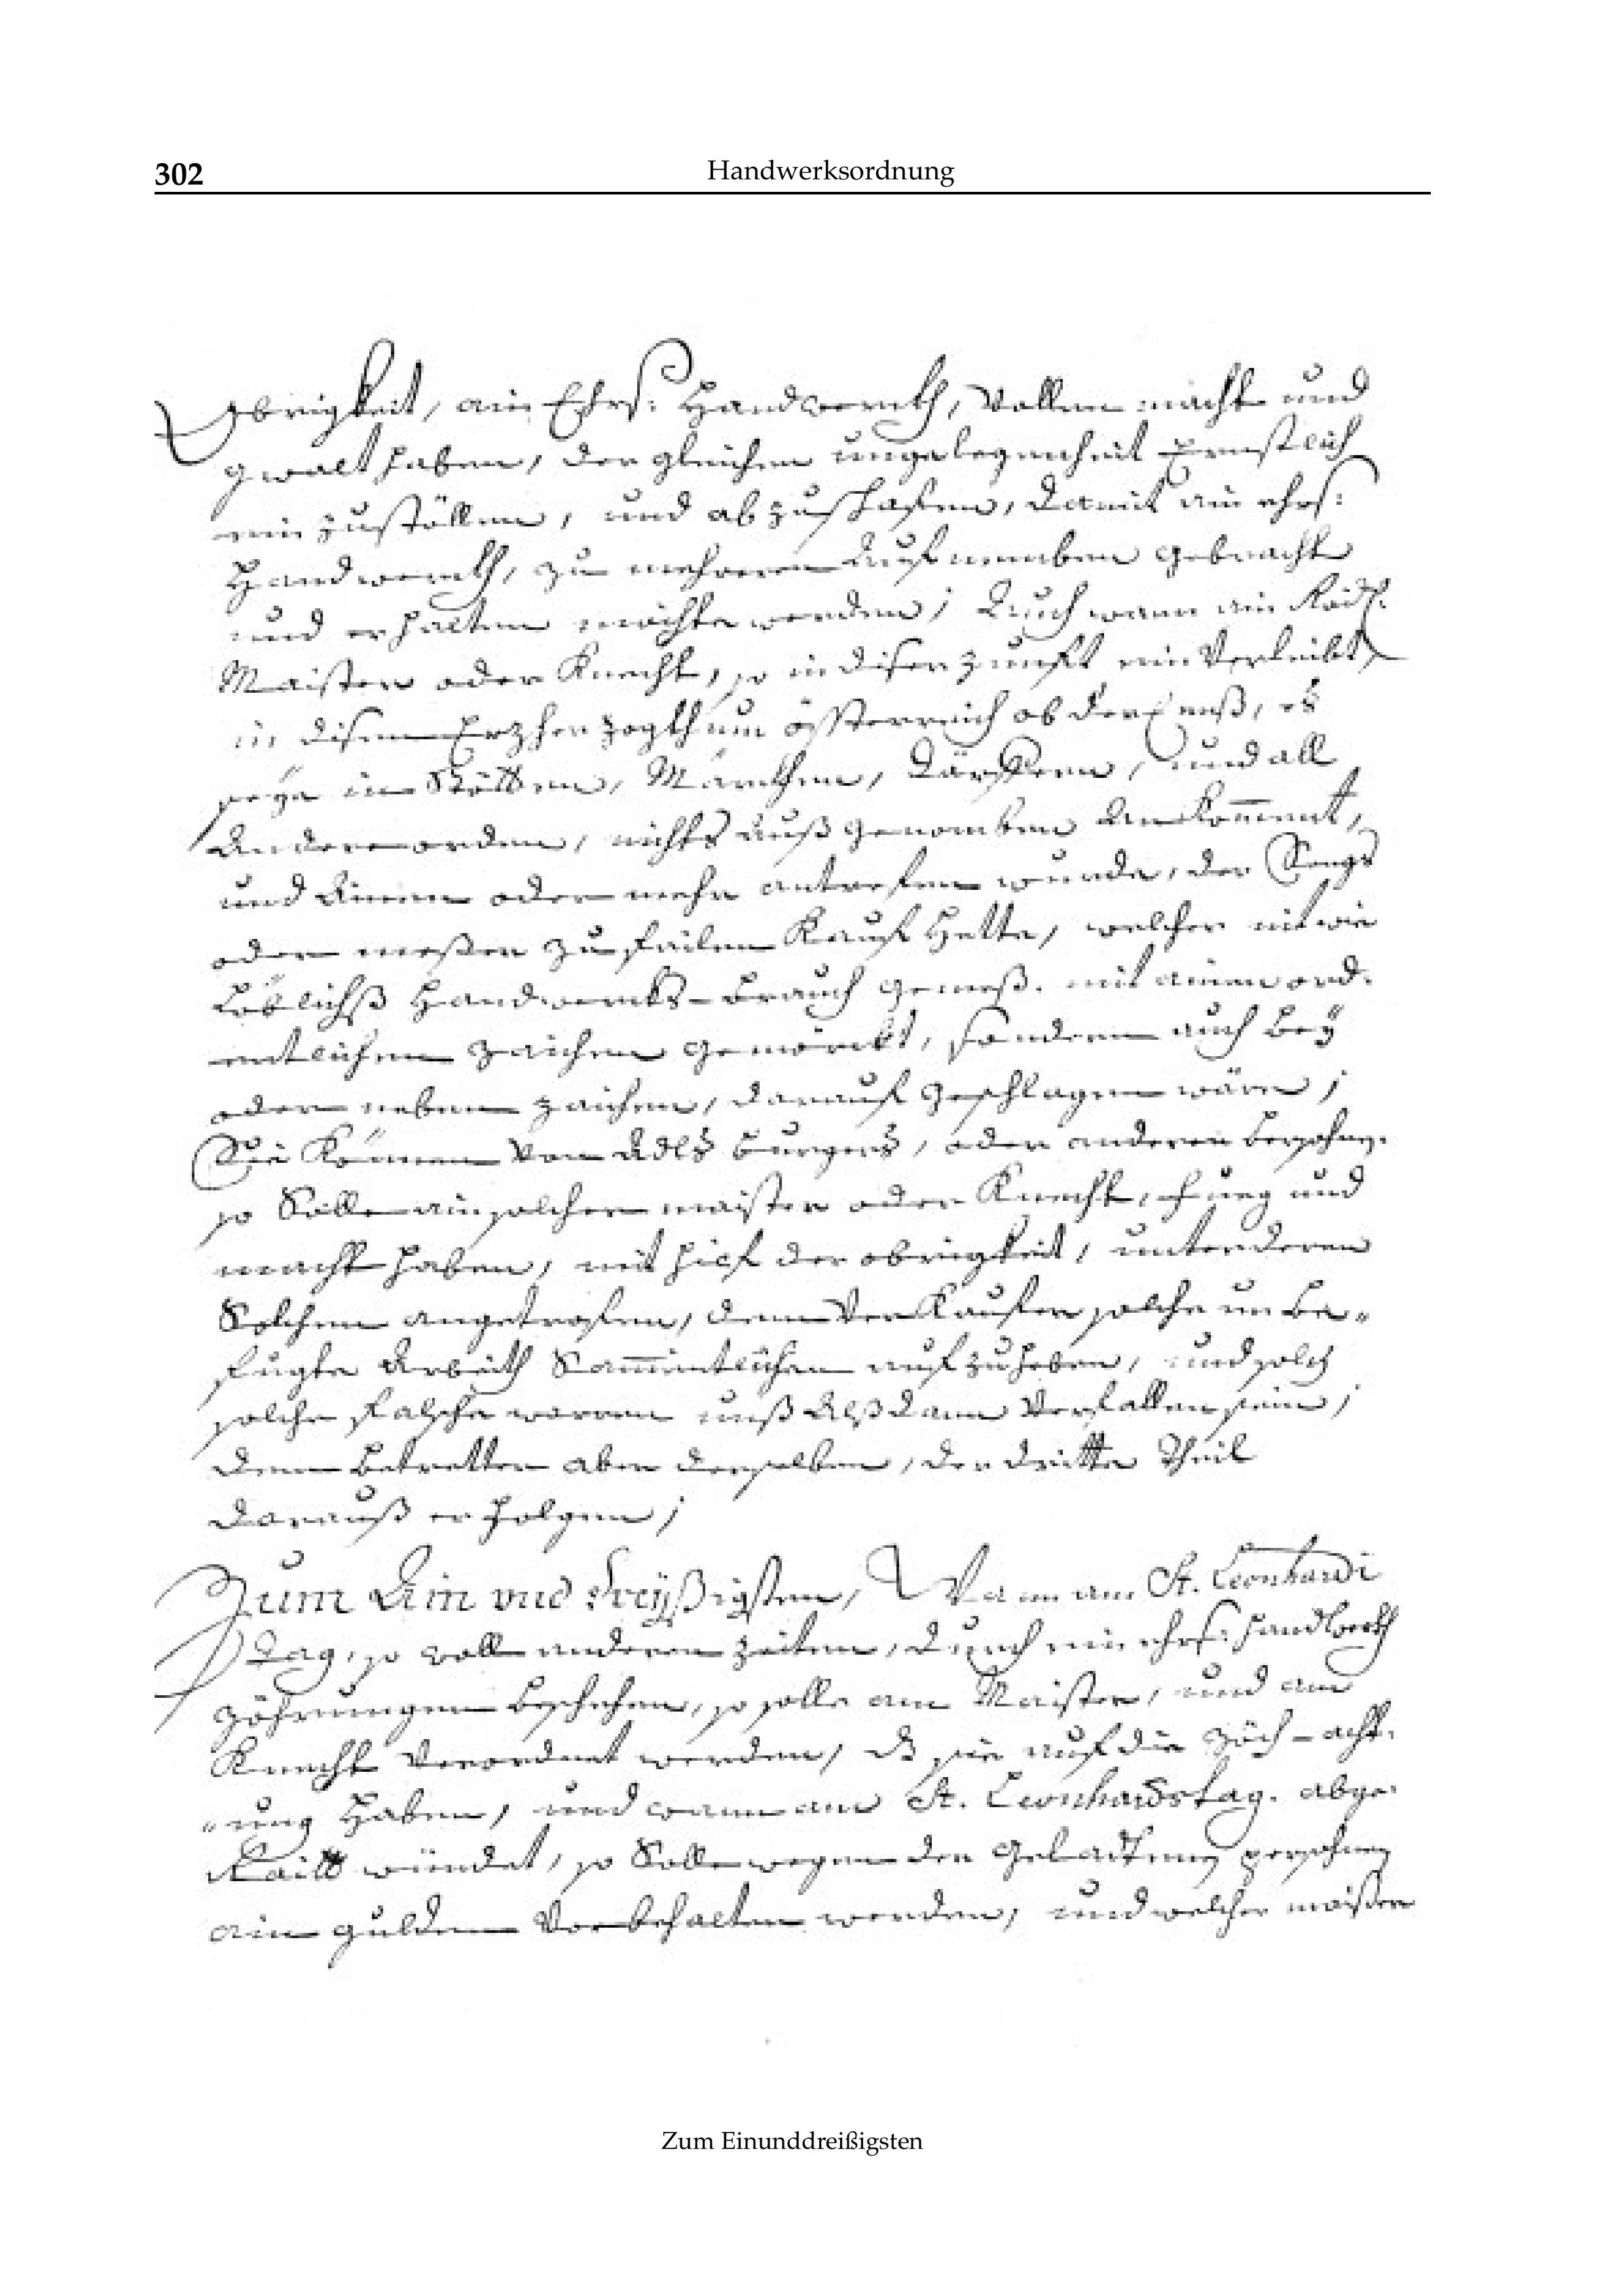 302
Handwerksordnung
Obrigkeit, ain Ehrs: Handwerckh, Vollen macht und
gwalt haben, der gleichen ungelegenheit Ernstlich
ein zustöllen, und ab zuschaffen, damit ain ehrs:
Handwerckh, zu mehreren Aufnemben gebracht
und erhalten möchte werden; Auch wann ain Rödl:
Maister oder Knecht, so in diser zunfft ein Verleibt,
in disem Erzherzogthum össterreich ob der Ennß, es
seÿe in Stötten, Märckhen, Därffern, und all
Anderen orden, nichts auß genomben Ankom̄ent,
und Ainen oder mehr antreffen wurde, der Sengs
oder messer zu failen Kauff Hette, welcher nit wie
Löblichß Handwercks-brauch gemeß. mit ainem ord-
entlichen zaichen gemörckt, sondern auch beÿ
oder neben zaichen, darauf geschlagen wären;
Sie Können Von Adls burgers, oder anderen Persohn.
so Solle ain solcher maister oder Knecht, fueg und
macht haben, mit hilf der obrigkeit, unter deren
Solchen angetroffen, dem Verkauffer solche un be-
fugte Arbeith Sam̄entlichen auf zu heben, und solch
solche falsche waren muß Alß dann Verfallen sein;
dem betretter aber derselben, der dritte Theil
darauß erfolgen;
Zum Ain und Dreÿßigsten, Wann am St. Leonhardi
Tag, so woll anderen zeiten, durch ein ehrs: handwerkh
zöhrungen beschehen, so solle ain Maister, und ain
Knecht Verordnet werden, dß sie auf die zöch-acht-
ung Haben, und wann am St. Leonhardstag. abge-
Raitt würdet, so Solle wegen der Geladtnen persohnen
ain gulden Vorbehalten werden, und welcher maister
Zum Einunddreißigsten